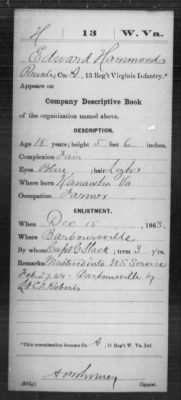 H | 13 | W. Va.
Edward Hammonds
Private, Co. A, 13 Reg't Virginia Infantry.*
Appears on
Company Descriptive Book
of the organization named above.
DESCRIPTION.
Age 18 years; height 5 feet 6 inches.
Complexion Fair
Eyes Blue; hair Light
Where born Kanawha Va
Occupation Farmer
ENLISTMENT.
When Dec 15, 1863.
Where Barboursville
By whom Capt G Slack; term 3 y'rs.
Remarks: Mustered into U.S. Service
Feb 27, 64 - Barboursville by
Lt C. Roberts
*This company became Co. A, 13 Reg't W. Va. Inf.
Copyist.